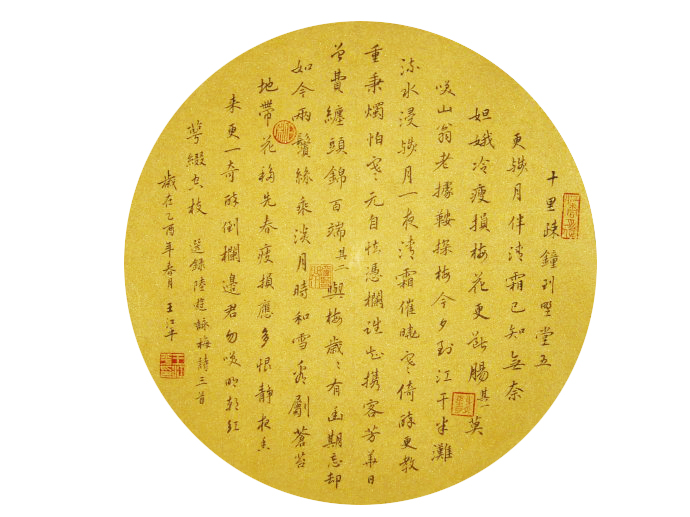 十里疎鐘到野堂五
更殘月伴清霜已知無奈
姮娥冷瘦損梅花更斷腸其一莫
咲山翁老據鞍探梅今夕到江干半灘
流水浸殘月一夜清霜催曉寒倚醉更教
重秉燭怕寒元自怯憑欄誰知携客芳華日
曾費纏頭錦百端其二與梅歲々有幽期忘却
如今兩鬢絲乘淡月時和雪看斸蒼苔
地帶花移先春瘦損應多恨靜夜香
來更一奇醉倒欄邊君勿咲明朝紅
萼綴空枝 選錄陸遊詠梅詩三首
歲在乙酉年春月 王江平